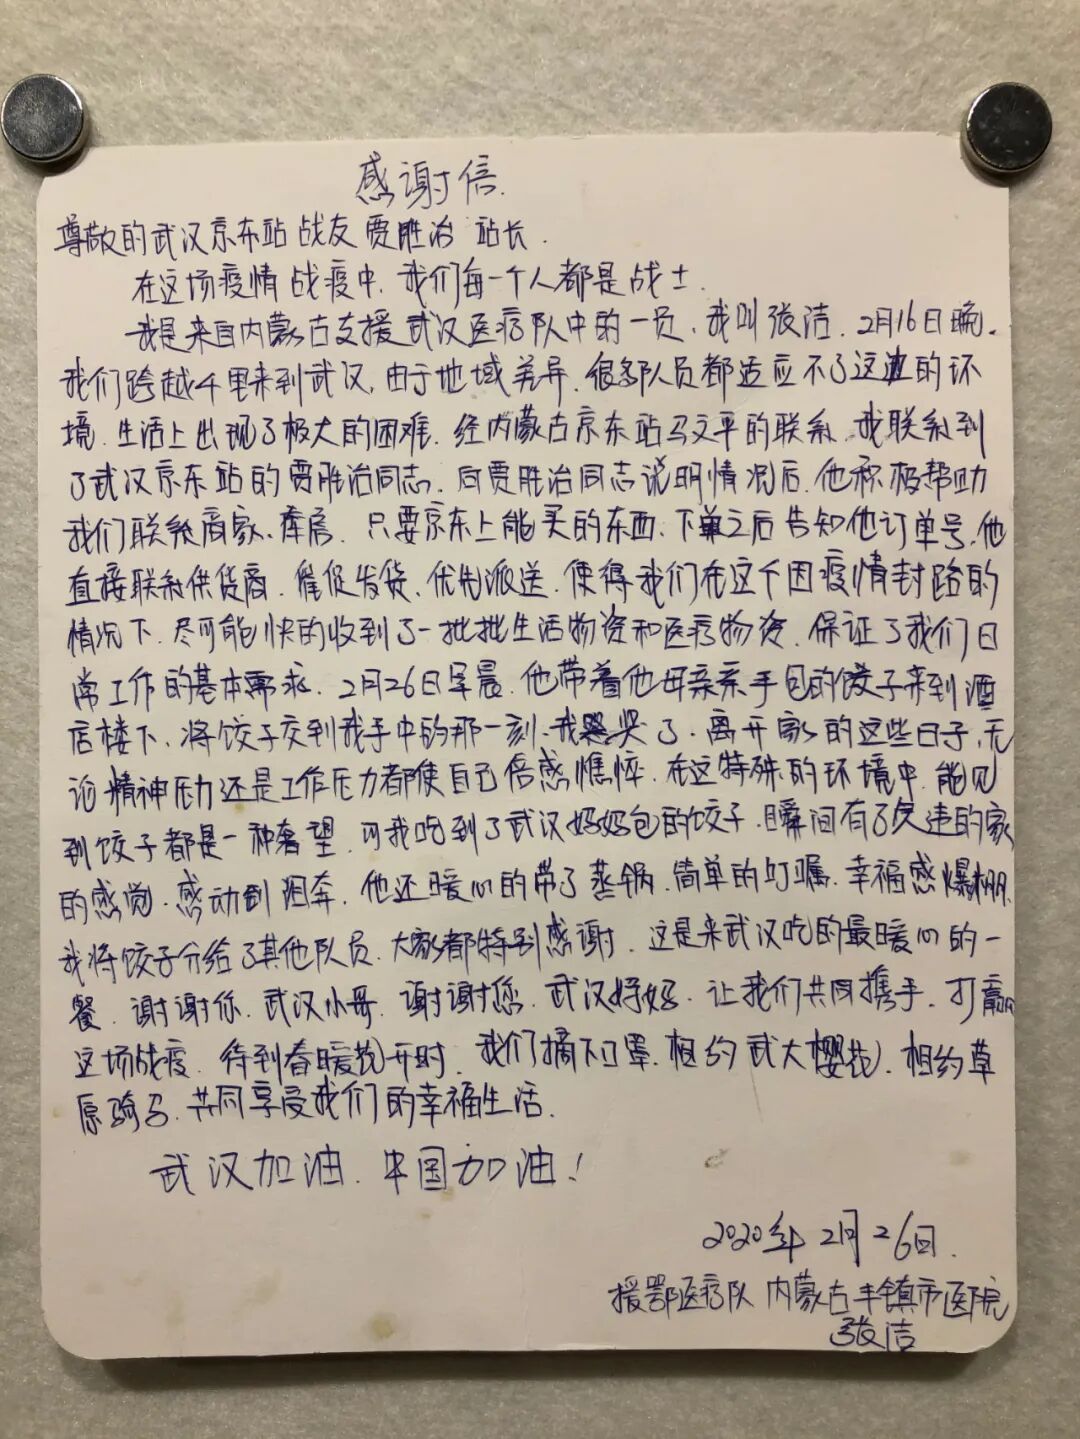 感谢信.
尊敬的武汉京东站战友贾胜治 站长.
在这场疫情战疫中,我们每一个人都是战士.
我是来自内蒙古支援武汉医疗队中的一员,我叫张洁.2月16日晚.
我们跨越千里来到武汉,由于地域差异.很多队员都适应不了这边的环
境.生活上出现了极大的困难.经内蒙古京东站马文平的联系.我联系到
了武汉京东站的贾胜治同志.向贾胜治同志说明情况后.他积极帮助
我们联系商家、库房.只要京东上能买的东西.下单之后告知他订单号.他
直接联系供货商.催促发货、优先派送.使得我们在这个因疫情封路的
情况下.尽可能快的收到了一批批生活物资和医疗物资.保证了我们日
常工作的基本需求.2月26日早晨.他带着他母亲亲手包的饺子来到酒
店楼下.将饺子交到我手中的那一刻.我哭了.离开家的这些日子,无
论精神压力还是工作压力都使自己倍感憔悴.在这特殊的环境中.能见
到饺子都是一种奢望.可我吃到了武汉妈妈包的饺子.瞬间有了久违的家
的感觉.感动到泪奔.他还暖心的带了蒸锅.简单的叮嘱.幸福感爆棚.
我将饺子分给了其他队员.大家都特别感谢.这是来武汉吃的最暖心的一
餐.谢谢你.武汉小哥.谢谢您.武汉妈妈.让我们共同携手.打赢
这场战疫.待到春暖花开时.我们摘下口罩.相约武大樱花.相约草
原骑马.共同享受我们的幸福生活.
武汉加油.中国加油!
2020年2月26日.
援鄂医疗队 内蒙古丰镇市医院
张洁